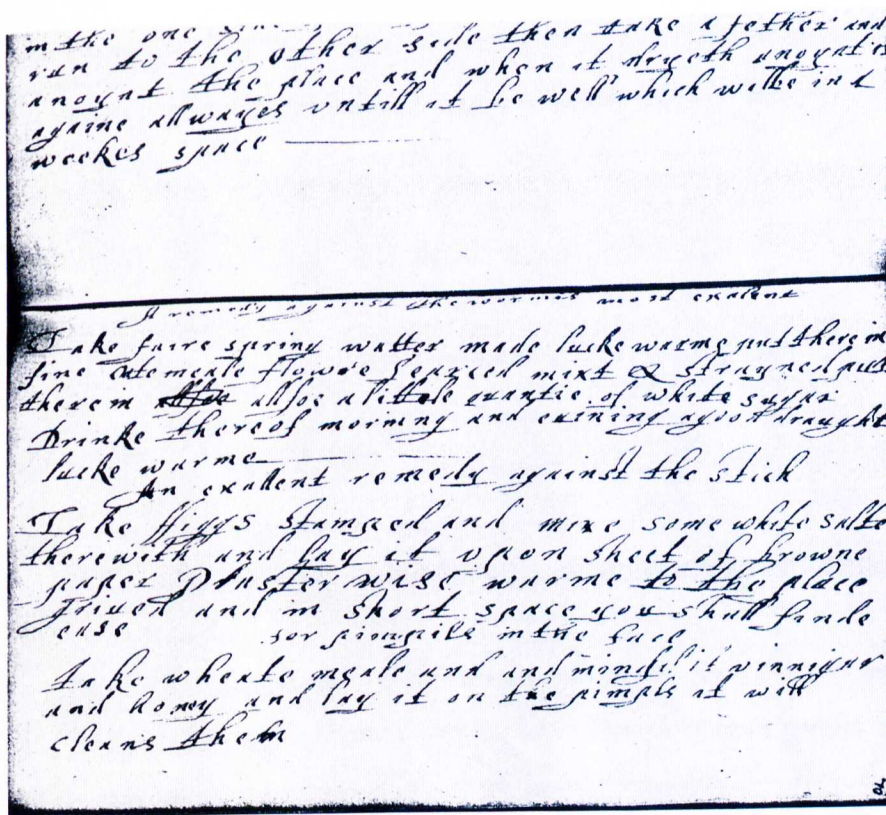 in the one
run to the other side then take a fether and
anoynt the place and when it dryeth anoynt it
againe allwayes untill it be well which wille in a
weekes space
A remedy against the wormes most exalent
Take faire spring watter made lucke warme put there in
fine otemeale flowre searced mixt & strayned put
therein allsoe a little quantie of white sugar
Drinke thereof morning and evining a good draught
lucke warme
An exallent remedy against the stich
Take ffiggs stamped and mixe some white salte
therewith and lay it vpon sheet of browne
paper Plaster wise warme to the place
griued and in short space you shall finde
ease
for pimpils in the face
take wheate meale and and mindil it vinnigar
and honey and lay it on the pimpls it will
cleans them